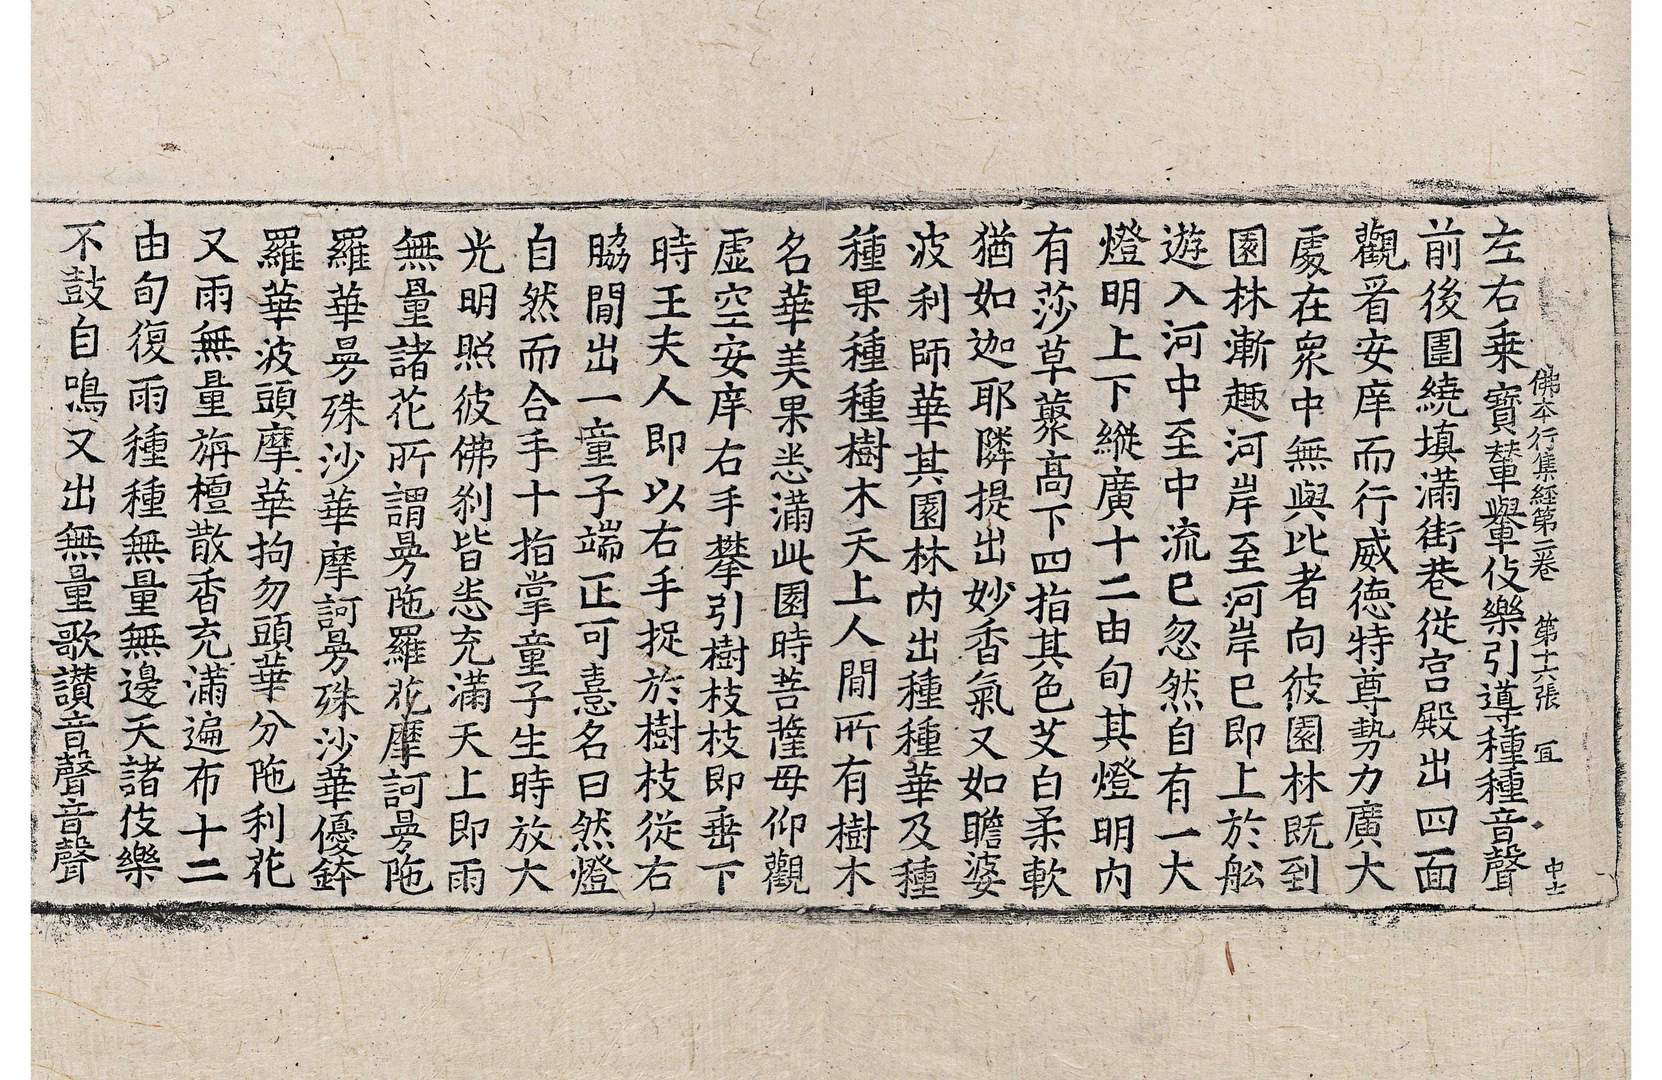 佛本行集經第二卷　第十六張　宜
左右乗寶輦轝伎樂引導種種音聲
前後圍繞填滿街巷從宮殿出四面
觀看安庠而行威德特尊勢力廣大
處在衆中無與比者向彼園林既到
園林漸趣河岸至河岸已即上於舩
遊入河中至中流已忽然自有一大
燈明上下縱廣十二由旬其燈明内
有莎草藂高下四指其色艾白柔軟
猶如迦耶隣提出妙香氣又如瞻婆
波利師華其園林内出種種華及種
種果種種樹木天上人間所有樹木
名華美果悉滿此園時菩薩母仰觀
虛空安庠右手攀引樹枝枝即垂下
時王夫人即以右手捉於樹枝從右
脇間出一童子端正可憙名曰然燈
自然而合手十指掌童子生時放大
光明照彼佛刹皆悉充滿天上即雨
無量諸花所謂曼陁羅花摩訶曼陁
羅華曼殊沙華摩訶曼殊沙華優鉢
羅華波頭摩華拘勿頭華分陁利花
又雨無量旃檀散香充滿遍布十二
由旬復雨種種無量無邊天諸伎樂
不鼓自鳴又出無量歌讃音聲音聲